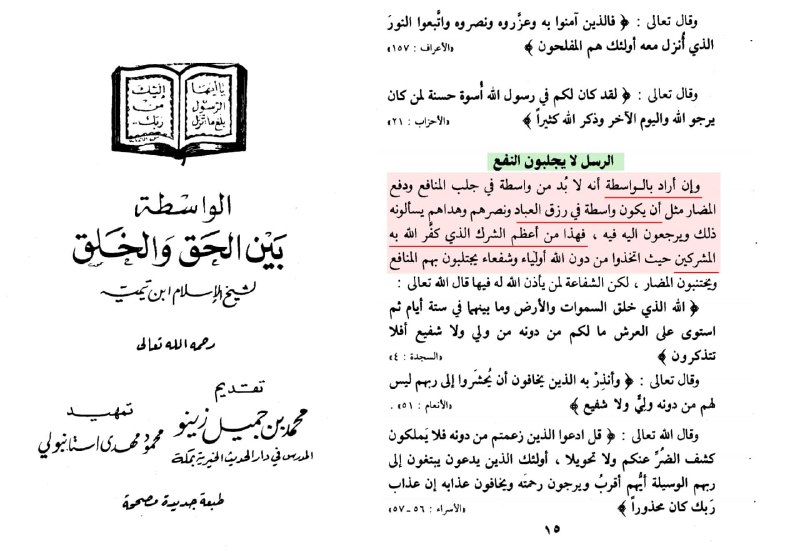 وقال تعالى : ﴿ فالذين آمنوا به وعزَّروه ونصروه واتَّبعوا النورَ
الذي أُنزل معه أولئك هم المفلحون ﴾ «الأعراف : ١٥٧»
وقال تعالى : ﴿ لقد كان لكم في رسول الله أُسوة حسنة لمن كان
يرجو الله واليوم الآخر وذكر الله كثيراً ﴾ «الأحزاب : ٢١»
الرسل لا يجلبون النفع
وإن أراد بالواسطة أنه لا بُد من واسطة في جلب المنافع ودفع
المضار مثل أن يكون واسطة في رزق العباد ونصرهم وهداهم يسألونه
ذلك ويرجعون اليه فيه ، فهذا من أعظم الشرك الذي كفَّر الله به
المشركين حيث اتخذوا من دون الله أولياء وشفعاء يجتلبون بهم المنافع
ويجتنبون المضار ، لكن الشفاعة لمن يأذن الله له فيها قال الله تعالى :
﴿ الله الذي خلق السموات والأرض وما بينهما في ستة أيام ثم
استوى على العرش ما لكم من دونه من ولي ولا شفيع أفلا
تتذكرون ﴾ «السجدة : ٤»
وقال تعالى : ﴿ وأنذِرْ به الذين يخافون أن يُحشَروا إلى ربهم ليس
لهم من دونه وليٌّ ولا شفيع ﴾ «الأنعام : ٥١» .
وقال الله تعالى : ﴿ قل ادعوا الذين زعمتم من دونه فلا يَملكون
كشف الضُرّ عنكم ولا تحويلا ، أولئك الذين يدعون يبتغون إلى
ربهم الوسيلة أيُّهم أقربُ ويرجون رحمتَه ويخافون عذابه إن عذاب
رَبك كان محذوراً ﴾ «الأسراء : ٥٦ - ٥٧»
١٥
يا أيها
الرسول
بلغ ما أنزل
إليك
من
ربك..
الواسطة
بين الحق والخلق
لشيخ الإسلام ابن تيمية
رحمه الله تعالى
تقديم
محمد بن جميل زينو
المدرس في دار الحديث الخيرية بمكة
تمهيد
محمود مهدي استانبولي
طبعة جديدة مصححة